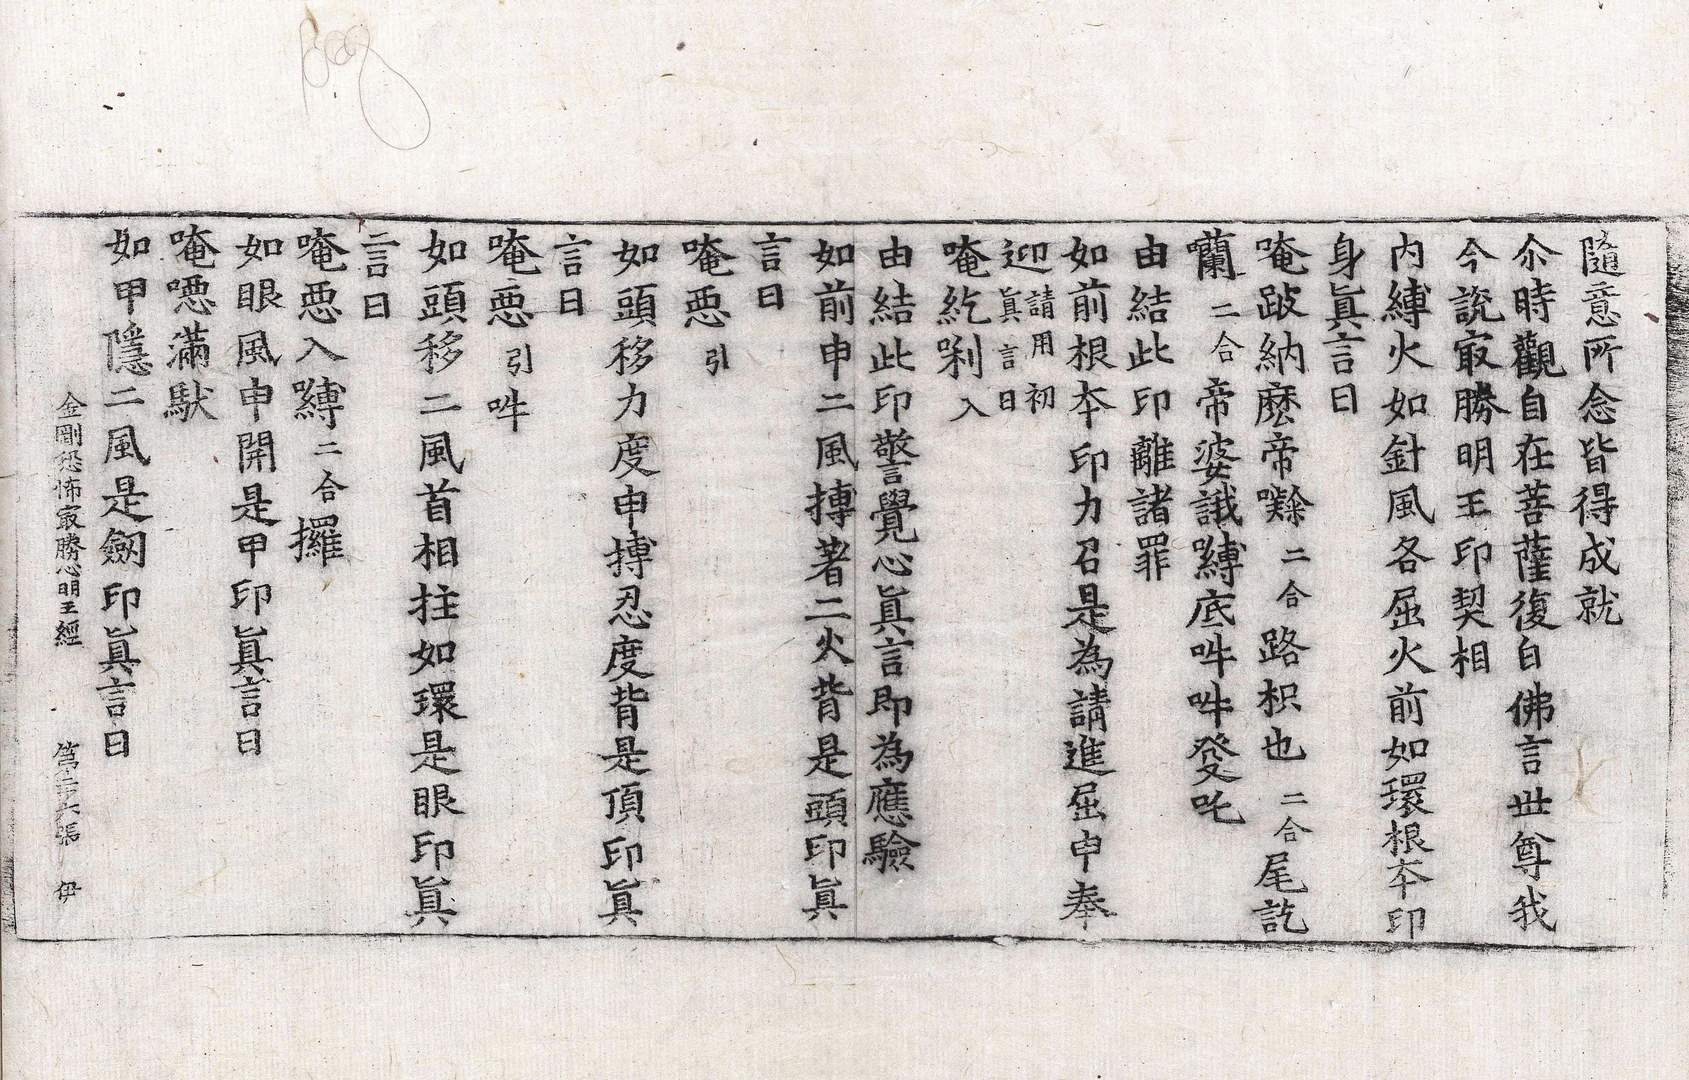 隨意所念皆得成就
尒時觀自在菩薩復白佛言世尊我
今說㝡勝明王印契相
內縛火如針風各屈火前如環根夲印
身眞言曰
唵跛納麼帝㗚二合路枳也二合尾訖
囒二合帝婆誐嚩底吽吽發吒
由結此印離諸罪
如前根夲印力召是為請進屈申奉
迎請用初眞言曰
唵紇唎入
由結此印警覺心眞言即為應驗
如前申二風搏著二火背是頭印眞
言曰
唵惡引
如頭移力度申搏忍度背是頂印眞
言曰
唵惡引吽
如頭移二風首相拄如環是眼印眞
言曰
唵惡入嚩二合攞
如眼風申開是甲印眞言曰
唵噁滿馱
如甲隱二風是劒印眞言曰
金剛恐怖㝡勝心明王經 第二六張 伊